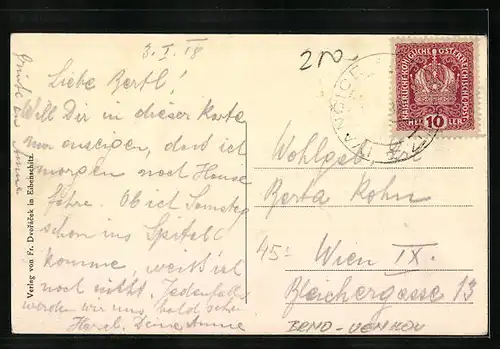 3. I. 18
Liebe Bertl!
Will Dir in dieser Karte
nur anzeigen, daß ich
morgen nach Hause
fahre. Ob ich Samstag
schon ins Spital
komme, weiß ich
noch nicht. Jedenfalls
werden wir uns bald sehen
Herzl. Deine Anna
Verlag von Fr. Dvořáček in Eibenschitz.
200
KAISERLICHE KÖNIGLICHE ÖSTERREICHISCHE POST
HELLER
10
Wohlgeb
Berta Kohn
45
Wien IX.
Bleichergasse 13